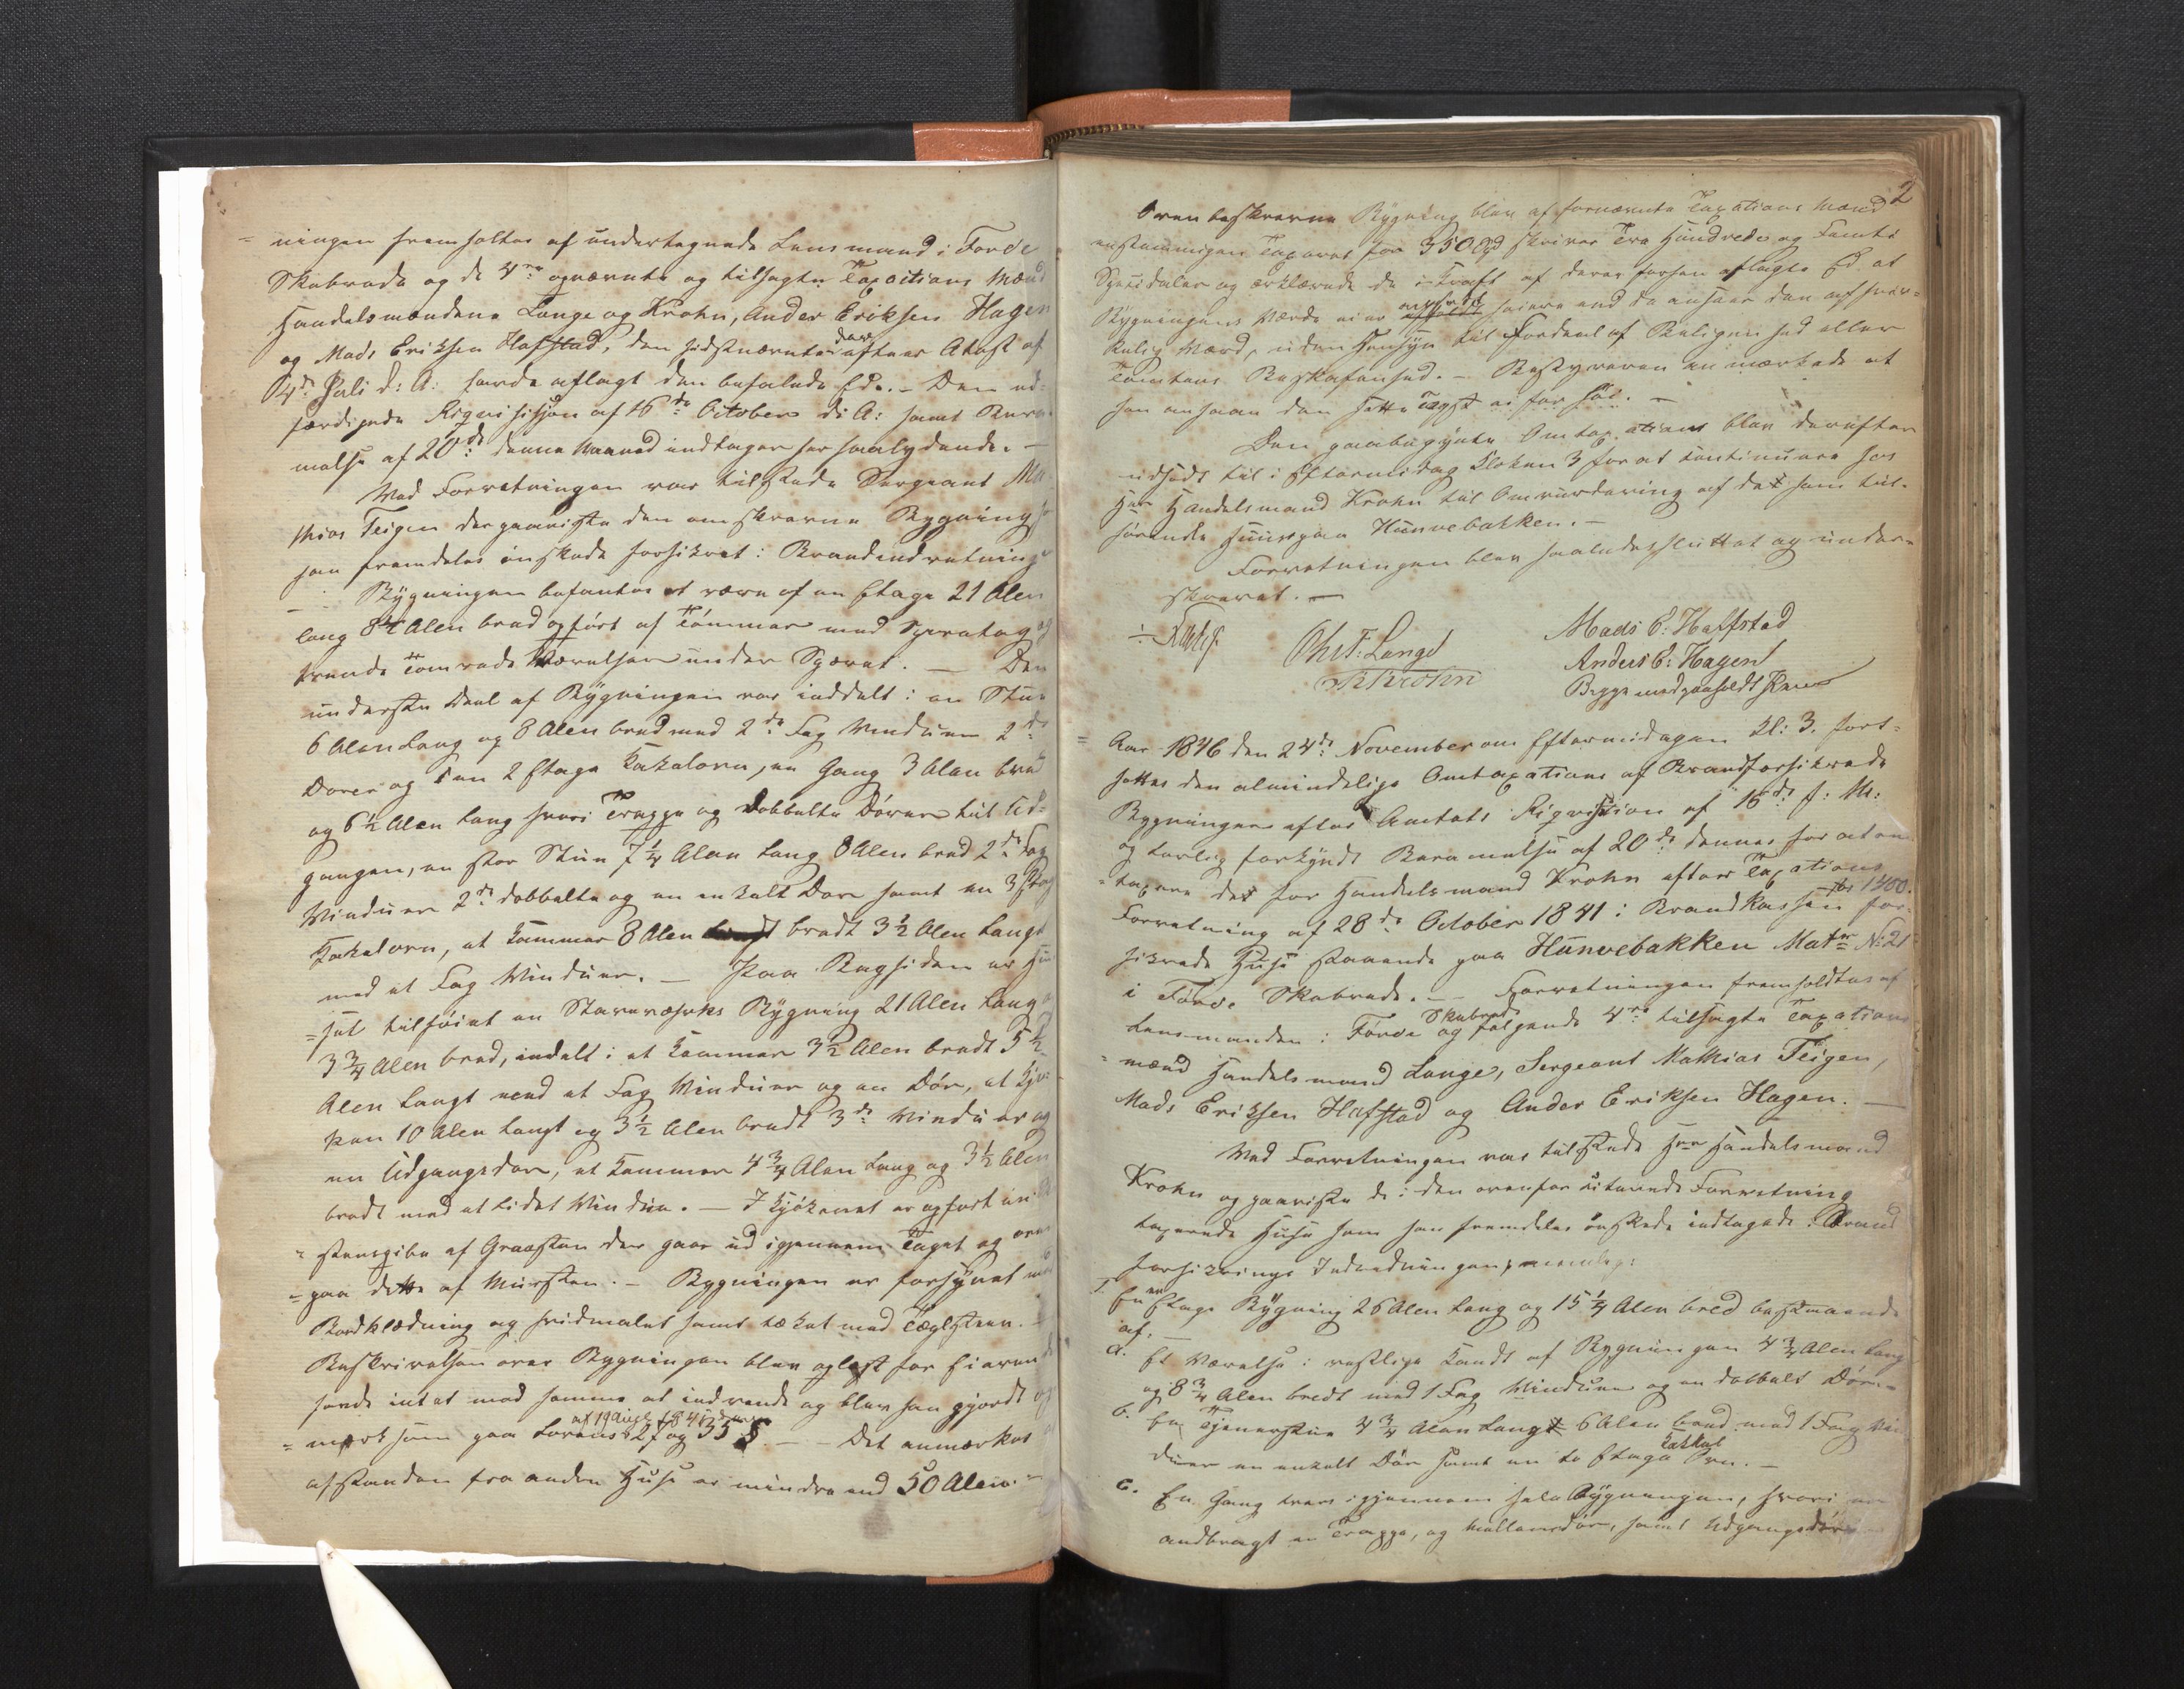 ningen fremholtes af undertegnede Lensmand i Førde
Skibrede og de 4re opnævnte og tilsagte Taxations Mænd
Handelsmændene Lange og Krohn, Ander Eriksen Hagen
og Mads Eriksen Hafstad, den sidstnævnte der efter Atest af
4de Juli d: A: havde aflagt den befalede Ed. - Den ud-
færdigede Reqvisisjon af 16de October d: A: samt Beram-
melse af 20de denne Maaned indtages her saalydende. -
Ved Forretningen var tilstede Sergeant Ma-
thias Teigen der paaviste den omskrevne Bygning som
han fremdeles ønskede forsikret i Brandindretningen
Bygningen befantes at være af en Etage 21 Alen
lang 8 Alen bred opført af Tømmer med Sperretag og
tvende Tømrede Værelser under Sperret. - Den
underste Deel af Bygningen var inddelt i en Stue
6 Alen lang og 8 Alen bred med 2de Fag Vinduer 2de
Dører og en 2 Etage Kakelovn, en Gang 3 Alen bred
og 6½ Alen lang hvori Trappe og dobbelte Dører til Ud-
gangen, en stor Stue 7¼ Alen lang 8 Alen bred 2de Fag
Vinduer 2de dobbelte og en enkelt Dør samt en 3 Etag
Kakelovn, et Kammer 8 Alen bredt 3½ Alen langt
med et Fag Vinduer. - Paa Bagsiden er Hu-
set tilføiet en Staveværks Bygning 21 Alen lang og
3¾ Alen bred, indelt i et Kammer 3½ Alen bredt 5½
Alen langt med et Fag Vinduer og en Dør, et Kjø-
ken 10 Alen langt og 3½ Alen bredt 3de Vinduer og
en Udgangsdør, et Kammer 4¾ Alen lang og 3½ Alen
bredt med et lidet Vindue. - I Kjøkenet er opført en Skor-
stenspibe af Graasten der gaar ud igjennem Taget og oven
paa dette af Mursten. - Bygningen er forsynet med
Bordklædning og hvidmalet samt tækket med Tægelsteen. -
Beskrivelsen over Bygningen blev oplæst for Eieren der
havde intet mod samme at indvende og blev han gjordt op-
mærksom paa Lovens af 19 Aug 1845 27 og 35 § - - Det anmærkes at
afstanden fra anden Huse er mindre end 50 Alen. -
2
Oven beskrevne Bygning blev af fornævnte Taxations Mænd
enstemmigen Taxeret for 350 Spd skriver Tre Hundrede og Femti
Speciedaler og erklærede de i Kraft af deres forhen aflagte Ed at
Bygningens Værdi ei er opsadt høiere end de ansaae den af hver-
kelig Værd, uden Hensyn til Fordeel af Beligenhed eller
Tomtens Beskafenhed. - Bestyreren anmærkede at
han ansaae den satte Taxt ei for høi. -
Den paabegynte Omtaxations blev derefter
udsadt til i Eftermidag Kloken 3 for at Continuere hos
Hrr Handelsmand Krohn til Omvurdering af det ham til-
hørende Huus paa Hunvebakken. -
Forretningen blev saaledes sluttet og under-
skrevet. -
Chr F: Lange
Krohn
Mads E: Haffstad
Anders E: Hagen
Begge med paaholdt Pen
Aar 1846 den 24de November om Eftermidagen Kl: 3. fort-
sattes den almindelige Omtaxations af Brandforsikrede
Bygninger efter Amtets Reqvisition af 16de f: M:
og lovlig forkyndt Berammelse af 20de dennes for at om-
taxere det for Handelsmand Krohn efter Taxations
Forretning af 28de October 1841 i Brandkassen for 1400
sikrede Huse staaende paa Hunvebakken Matr No 21
i Førde Skibrede. - - Forretningen fremholdtes af
Lensmanden i Førde Skibrede og følgende 4re tilsagte Taxations
mænd Handelsmand Lange, Sergeant Mathias Teigen,
Mads Eriksen Hafstad og Ander Eriksen Hagen. -
Ved Forretningen var tilstede Hrr Handelsmand
Krohn og paaviste de i den ovenfor Citerede Forretning
taxerede Huse som han fremdeles ønskede indtagede i Brand
forsikrings Indredningen, nemlig:
1. En en Etage Bygning 26 Alen lang og 15¼ Alen bred bestaaende
af. -
a. Et Værelse i vestlige Kandt af Bygningen 4¾ Alen lang
og 8¾ Alen bredt med 1 Fag Vinduer og en dobbelt Dør. -
b. En Tjenerstue 4¾ Alen lang 6 Alen bred med 1 Fag Vin
duer en enkelt Dør samt en to Etage Kakkel Ovn. -
c. En Gang tvers igjennem hele Bygningen, hvori er
andbragt en Trappe, og Mellemdør, samt Udgangsdør